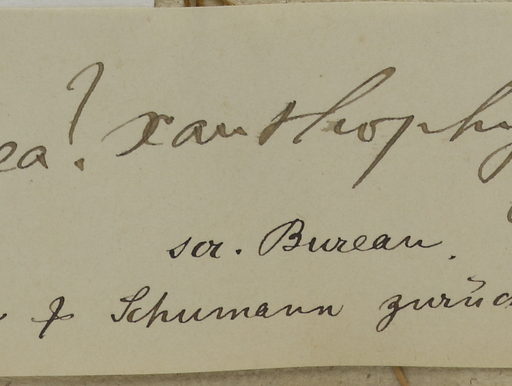 ea? xanthophy
scr. Bureau.
Schumann zurüc